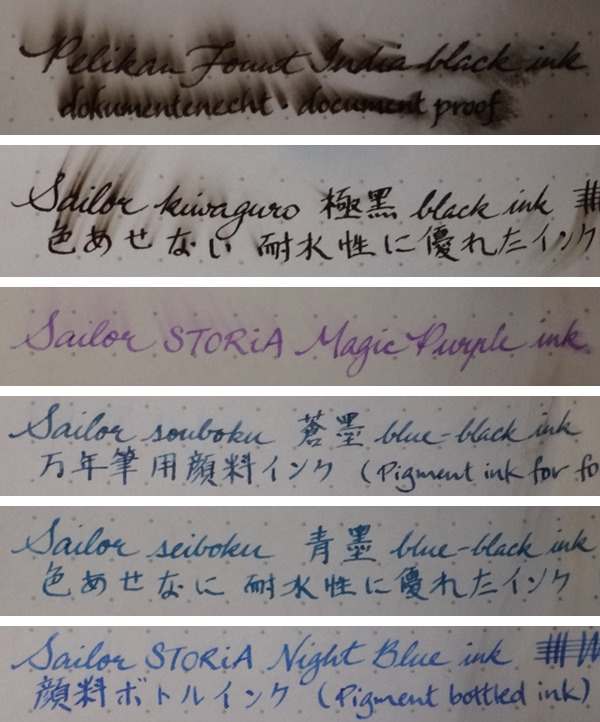 Pelikan Fount India black ink
dokumentenecht · document proof
Sailor kiwaguro 極黒 black ink
色あせない 耐水性に優れたインク
Sailor STORiA Magic Purple ink
Sailor souboku 蒼墨 blue-black ink
万年筆用顔料インク (Pigment ink for fo
Sailor seiboku 青墨 blue-black ink
色あせなに 耐水性に優れたインク
Sailor STORiA Night Blue ink
顔料ボトルインク (Pigment bottled ink)